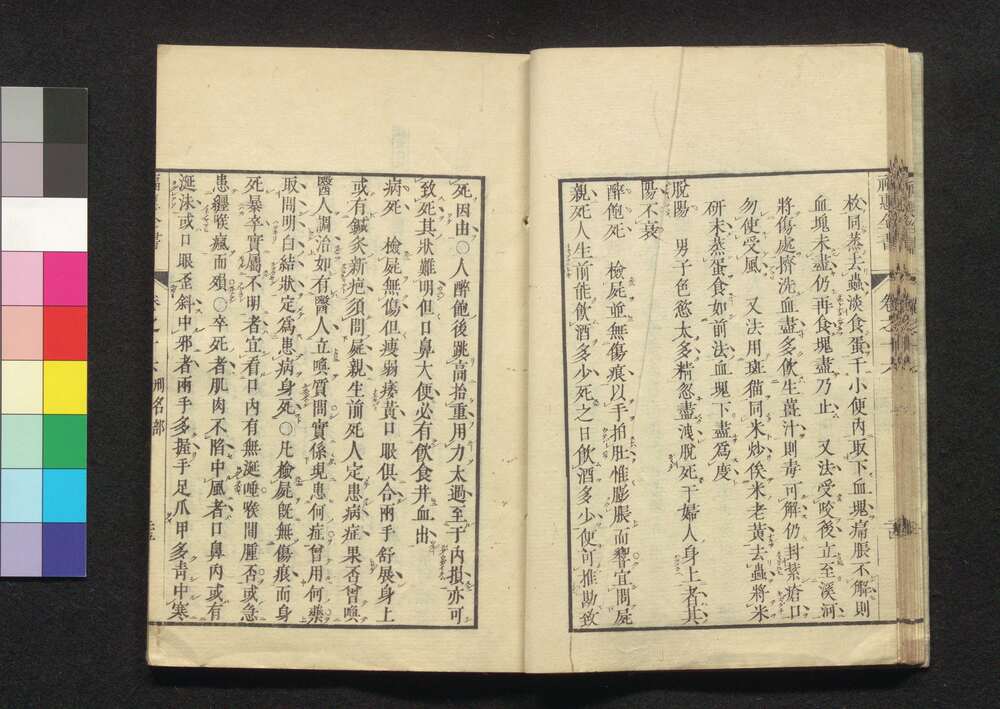 枚同蒸去蟲淡食蛋于小便内取下血塊痛脹不解則
血塊未盡仍再食塊盡乃止　又法受咬後立至溪河
將傷處擠洗血盡多飲生薑汁則毒可解仍封紮瘡口
勿使受風　又法用斑猫同米炒俟米老黃去蟲將米
研末蒸蛋食如前法血塊下盡爲度
脫陽　男子色慾太多精忽盡洩脫死于婦人身上者其
陽不衰
醉飽死　檢屍並無傷痕以手拍肚惟膨脹而響宜問屍
親死人生前能飲酒多少死之日飲酒多少便可推勘致
死因由○人醉飽後跳高抬重用力太過至于内損亦可
致死其狀難明但口鼻大便必有飲食并血出
病死　檢屍無傷但瘦弱痿黃口眼俱合兩手舒展身上
或有鍼灸新疤須問屍親生前死人定患病症果否曾喚
醫人調治如有醫人立喚質問實係現患何症曾用何藥
取問明白結狀定爲患病身死○凡檢屍旣無傷痕而身
死暴卒實屬不明者宜看口内有無涎唾喉間腫否或急
患纒喉瘋而殞○卒死者肌肉不陷中風者口鼻内或有
涎沫或口眼歪斜中邪者兩手多握手足爪甲多青中寒
刑名部